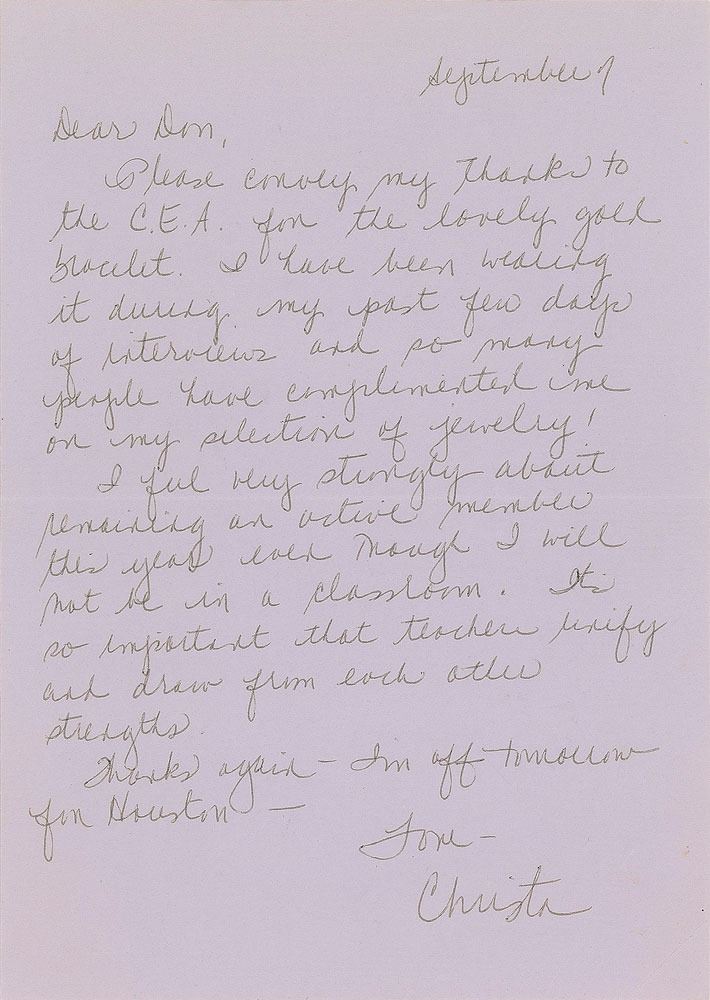 September 7
Dear Don,
Please convey my thanks to
the C.E.A. for the lovely gold
bracelet. I have been wearing
it during my past few days
of interviews and so many
people have complimented me
on my selection of jewelry!
I feel very strongly about
remaining an active member
this year even though I will
not be in a classroom. It's
so important that teachers unify
and draw from each other
strengths.
Thanks again - I'm off tomorrow
for Houston -
Love -
Christa